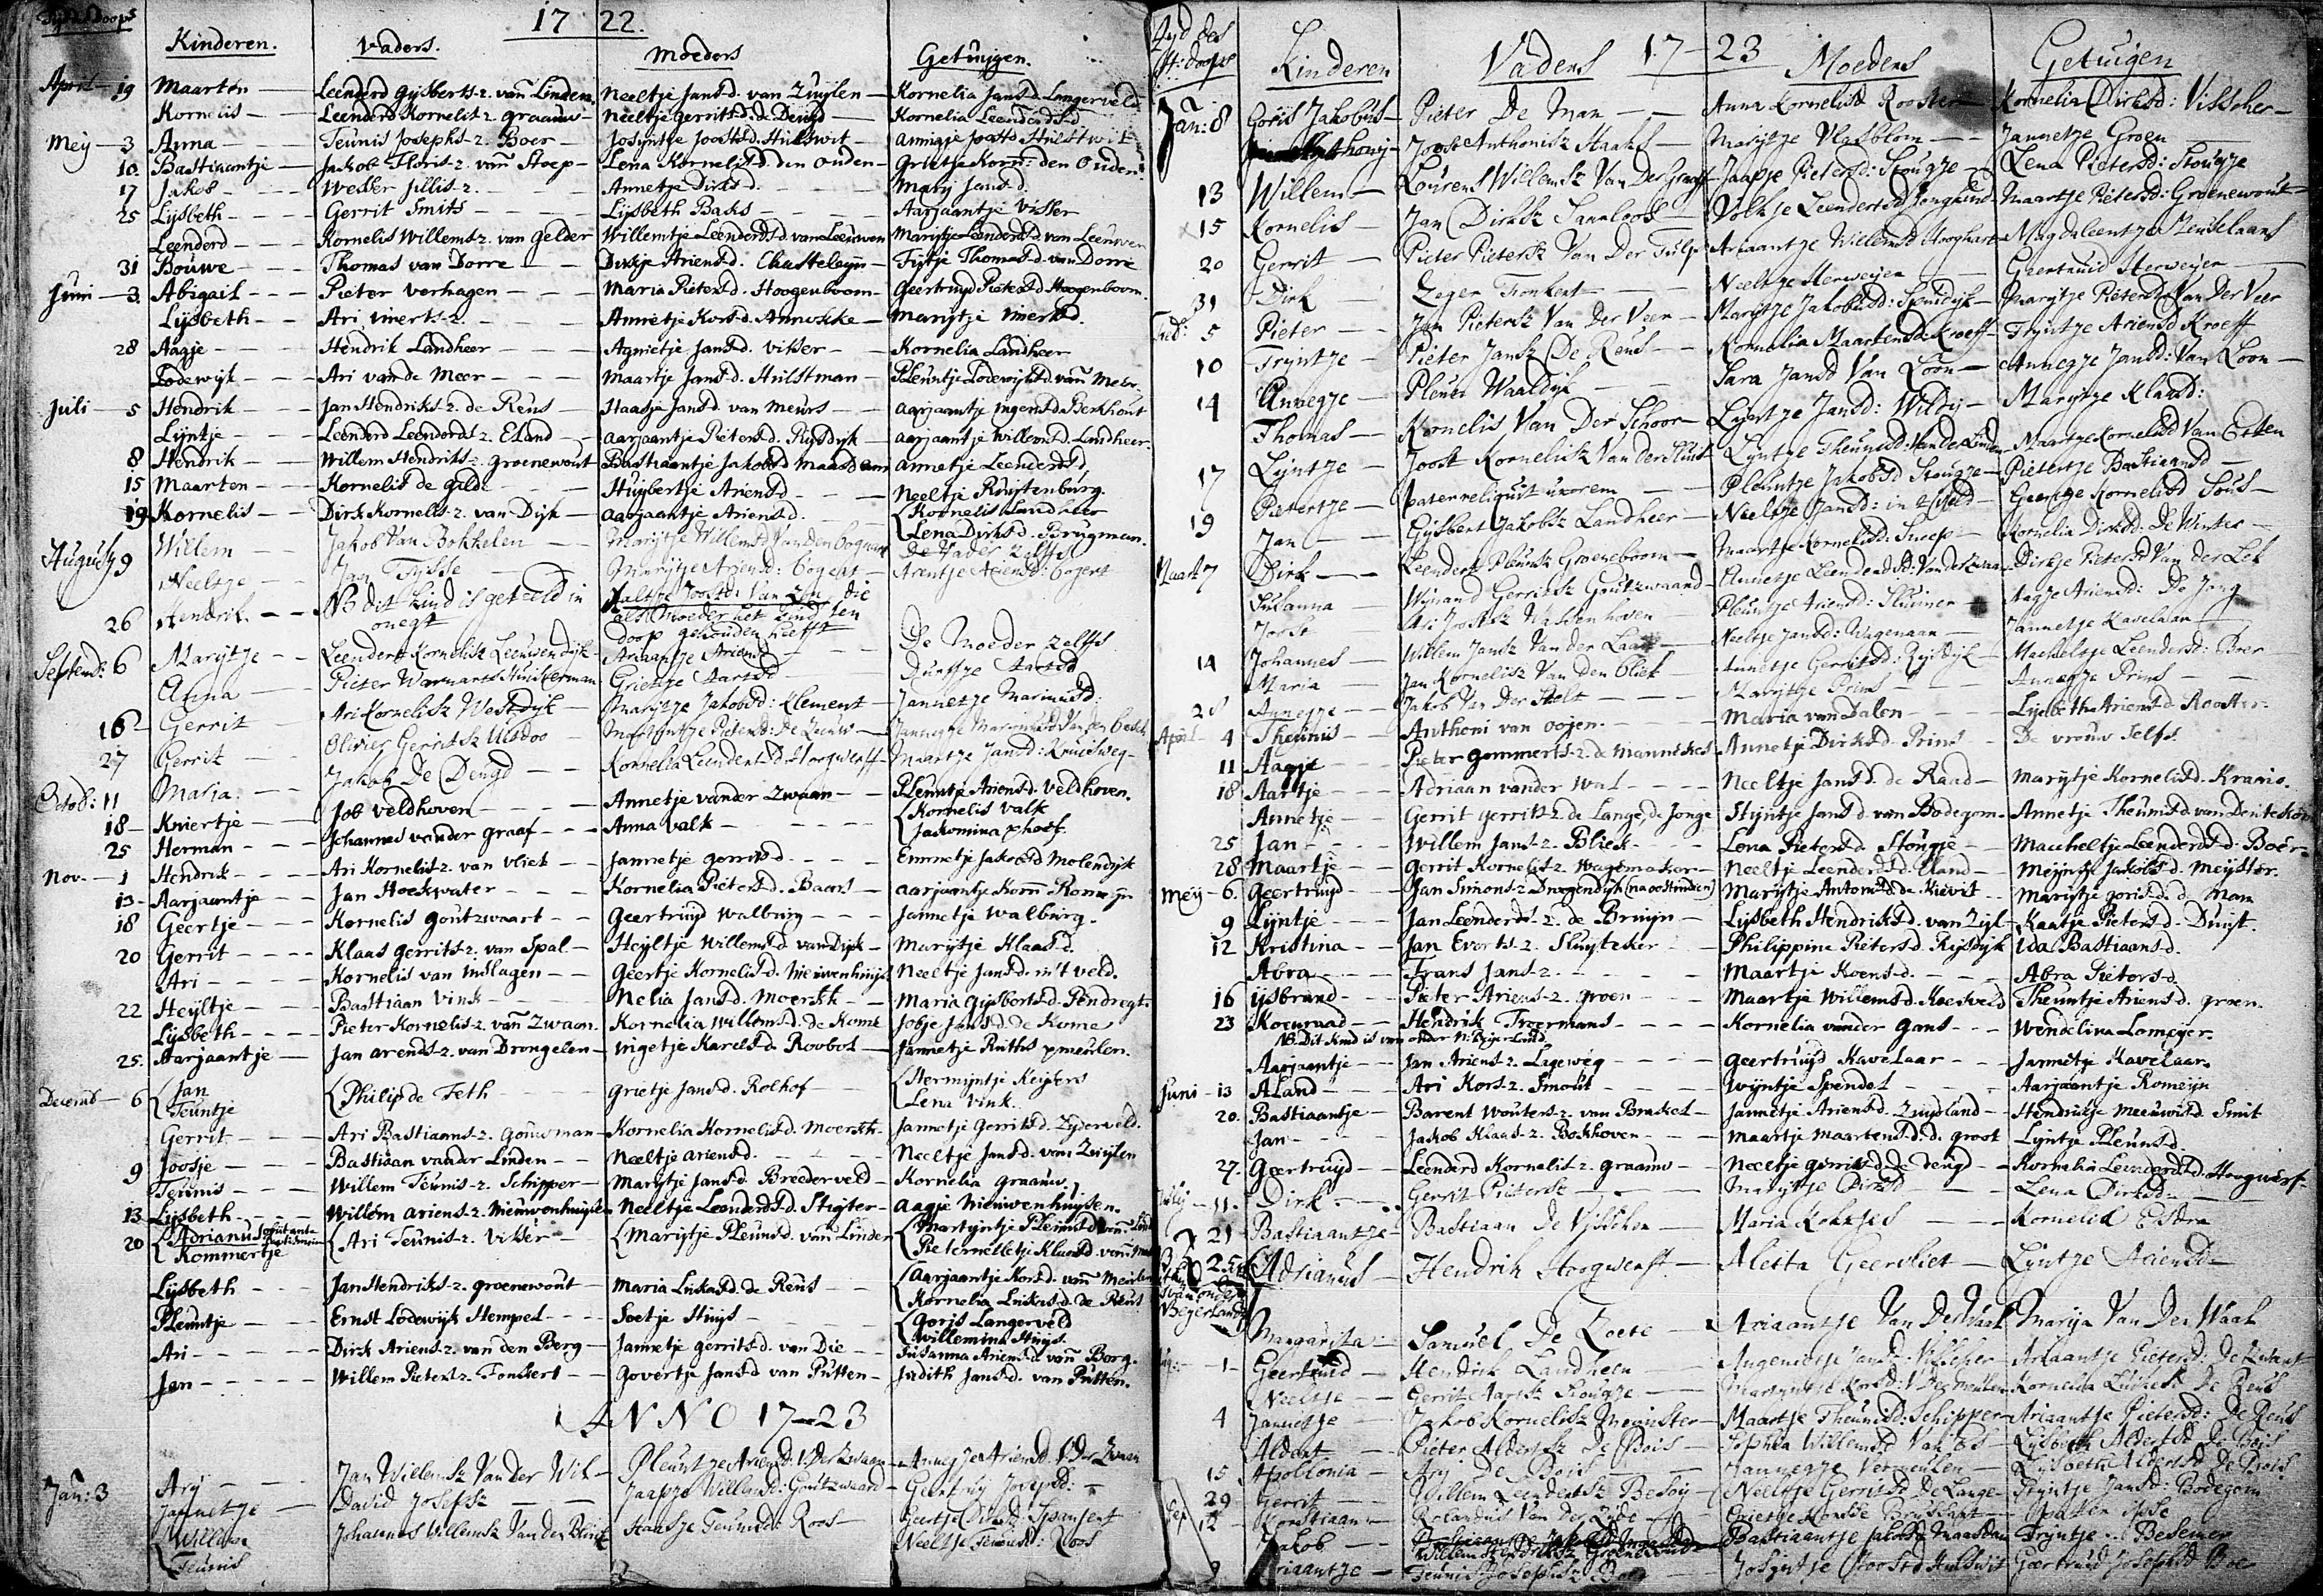 Tijd des doops 17 22.
Kinderen. Vaders. Moeders Getuijgen.
April 19 Maarten Leenderd Gysberts-z. van Linden. Neeltje Jans-d. van Zuijlen Kornelia Jans-d Langerveld
Kornelis Leenderd Kornelis-z. graauw Neeltje gerrits-d. de Deugd Kornelia Leenderds-d
Mey 3 Anna Teunis Josephs-z. Boer Josyntje Joosts-d. Hulswit Annigje Joosts-d Hulswit
10. Bastiaantje Jakob Floris-z. van Stoep Lena Kornelis-d. den Ouden Grietje Korn: den Ouden
17 Jakob Wessel Jillis-z. Annetje Dirks-d. Mary Jans-d.
25 Lijsbeth Gerrit Smits Lijsbeth Baks Aarjaantje Visser
Leenderd Kornelis Willems-z. van Gelder Willemtje Leenderds-d. van Leeuwen Marijtje Leenderds-d. van Leeuwen
31 Bouwe Thomas van Dorre Dirkje Ariens-d. Chasteleyn Fijtje Thomas-d. van Dorre
Juni 3. Abigail Pieter Verhagen Maria Pieters-d. Hoogenboom Geertruyd Pieters-d Hoogenboom
Lijsbeth Ari Vinerts-z. Annetje Kors-d. Annokke Marijtje Vinerts-d.
28 Aagje Hendrik Landheer Agnietje Jans-d. Visser Kornelia Landheer
Lodewijk Ari van de Meer Maartje Jans-d. Hulstman Pleuntje Lodewijks-d. van Meer
Juli 5 Hendrik Jan Hendriks-z. de Reus Haasje Jans-d. van Meurs Aarjaantje Ingens-d. Berkhout
Lijntje Leenderd Leenderds-z. Eland Aarjaantje Pieters-d. Rijsdijk Aarjaantje Willems-d. Landheer
8 Hendrik Willem Hendriks-z. Groenewout Bastiaantje Jakobs-d Maasdam Annetje Leenderds-d
15 Maarten Kornelis de Gilde Huijbertje Ariens-d Neeltje Ruijtenburg.
19 Kornelis Dirk Kornelis-z. van Dijk Aarjaantje Ariens-d. Kornelis Landheer
Lena Dirks-d. Brugman.
August 9 Willem Jakob Van Bokkelen Marijtje Willems-d Van den Bogaert De Vader zelfs
Neeltje Jan Tysse Marijtje Ariens-d: Bogert Arentje Ariens-d: Bogert
26 Hendrik NB dit kind is geteeld in Aaltje Joosts-d: Van Es die
onegt als Moeder het kind ten
doop gehouden heefft
Septemb: 6 Marijtje Leendert Kornelisz Leeuwendijk Ariaantje Ariens-d De Moeder zelfs
Anna Pieter Warnarts Huiskerman Grietje Aartsd Duifje Aartsd
16 Gerrit Ari Kornelisz Westdijk Marijtje Jakobsd: Klement Jannetje Marinusd
27 Gerrit Olivier Gerritsz Uitdoo Martijntje Pietersd: De Leeuw
Octob: 11 Maria Jakob De Deugd Kornelia Leendertsd Hoogwerff Maartje Jansd: Kruisweg
18 Kniertje Job Veldhoven Annetje vander Zwaan Pleuntje Ariens-d. Veldhoven.
25 Herman Johannes vander graaf Anna Valk Kornelis Valk
Jakomina phoef
Nov. 1 Hendrik Ari Kornelis-z. van Vliet Jannetje gerrits-d. Emmetje Jakobs-d Molendijk
13 Aarjaantje Jan Hoekwater Kornelia Pieters-d. Baars Aarjaantje Korn: Romeijn
18 Geertje Kornelis Goutzwaart Geertruyd Walburg Jannetje Walburg.
20 Gerrit Klaas Gerrits-z. van Spal Heyltje Willems-d van Dijk Marijtje Klaas-d.
Ari Kornelis van Inslagen Geertje Kornelis-d. Nieuwenhuijs Neeltje Jans-d. in 't veld.
22 Heyltje Bastiaan Vink Nelia Jans-d. Moerkk Maria Gijsberts-d. Pendregt
Lijsbeth Pieter Kornelis-z. van Zwaan. Kornelia Willems-d. de Kome Jobje Jans-d. de Kome
25. Aarjaantje Jan Arends-z. van Drongelen Ingetje Karels-d. Roobol Jannetje Ruths pmeulen.
Decemb 6 Jan Philip de Feth Grietje Jans-d. Rolhof Hermijntje Keijsers
Teuntje Lena Vink.
Gerrit Ari Bastiaans-z. Gouwsman Kornelia Kornelis-d. Moerkk Jannetje Gerrits-d. Zijderveld.
9 Joosje Bastiaan vander Linden Neeltje Ariens-d. Neeltje Jans-d. van Zuijlen
Teunis Willem Teunis-z. Schipper Marijtje Jans-d Breederveld Kornelia Graauw.
13 Lijsbeth Willem Ariens-z. Nieuwenhuijsen Neeltje Leenderds-d. Stigter Aagje Nieuwenhuijsen.
20 Adrianus Ari Teunis-z. Visser Marijtje Pleuns-d. van Linden Martijntje Pleuns-d van Linden
Kommertje Pieternelletje Klaas-d. van
Lijsbeth Jan Hendriks-z. Groenewout Maria Lukas-d. de Reus Aarjaantje Kors-d. van Meulen
Kornelia Lukas-d. de Reus
Pleuntje Ernst Lodewijk Hempel Soetje Huijs Goris Langerveld
Willemina Huijs
Ari Dirk Ariens-z. van den Berg Jannetje Gerrits-d. van Die Susanna Ariens-d van Berg.
Jan Willem Pieters-z. Fonkert Govertje Jans-d van Putten Judith Jans-d. van Putten.
ANNO 17-23
Jan: 3 Ary Jan Willemsz Van der Wil Pleuntje Ariensd: V:der Zwaan Annegje Ariensd V:der Zwaan
Jannetje David Josefsz Jaapje Willemsd: Goutzwaard Geertruij Josepsd:
Willem Johannes Willemsz Van der Blink Haasje Teunisd: Roos Geertje Dirksd: Sponsent
Teunis Neeltje Teunisd: Roos
Tyd des H: doops Kinderen Vaders 17-23 Moeders Getuigen
Jan: 8 Goris Jakobus Pieter De Man Anna Kornelisd Rooster Kornelia Dirksd: Visscher
Anthonij Joost Anthonisz Haaks Marijtje Vlasblom Jannetje Groen
13 Willem Lourens Willemsz Van Der Graaff Jaapje Pietersd: Stougje Lena Pietersd: Stougje
15 Kornelis Jan Dirksz Saneloos Volkje Leendertsd Jongkind Maartje Pietersd: Groenewout
20 Gerrit Pieter Pietersz Van Der Tulp Ariaantje Willemsd Hooghart Magdaleentje Keuselaars
31 Dirk Zeger Fonkert Neeltje Herweijer Geertruid Herweijer
Feb: 5 Pieter Jan Pietersz Van Der Veer Marijtje Jakobusd: Spuidijk Marijtje Pietersd Van Der Veer
10 Tryntje Pieter Jansz De Reus Kornelia Maartensd: Kroeff Tryntje Ariensd Kroeff
14 Annegje Pleun Waaldijk Sara Jansd Van Loon Annegje Jansd: Van Loon
Thomas Kornelis Van Der Schoor Lijntje Jansd: Wildij Marijtje Klaasd:
17 Lijntje Joost Kornelisz Van der Sluis Lijntje Theunisd: Van de Linden Maartje Kornelisd Van Etten
Pietertje Pater reliquit uxorem Pleuntje Jakobsd Stougje Pietertje Bastiaansd
19 Jan Gijsbert Jakobsz Landheer Neeltje Jansd: in 't Veld Geertje Kornelisd Sous
Maart 7 Dirk Leendert Pleunsz Groeneboom Maartje Kornelisd: Sneep Kornelia Dirksd: De Winter
Susanna Wijnand Gerritsz Goutzwaard Annetje Leendertsd: Van der Zwaan Dirkje Pietersd Van der Lek
Joost Ari Joostsz Wassenhoven Pleuntje Ariensd: Kluiner Aagje Ariensd: De Jong
14 Johannes Willem Jansz Van der Laan Neeltje Jansd: Wagenaar Jannetje Kavelaar
Maria Jan Kornelisz Van Den Vliet Annetje Gerritsd: Rijsdijk Macheltje Leendersd: Boer
28 Annegje Jakob Van Der Stelt Marijtje Prins Annegje Prins
April 4 Theunis Anthoni van Oojen. Maria van Dalen Lijsbeth Ariens-d Rooster.
11 Aagje Pieter Gommerts-z. de Mannekes Annetje Dirks-d. Prins De vrouw selfs
18 Aartje Adriaan vander Wal Neeltje Jans-d. de Raad Marijtje Kornelis-d. Kranis.
Annetje Gerrit Gerrits-z. de Lange, de Jonge Stijntje Jans-d van Bodegom Annetje Theunis-d van Dentekom
25 Jan Willem Jans-z. Bliek Lena Pieters-d. Stougje Macheltje Leenderds-d. Boer.
28 Maartje Gerrit Kornelis-z. Wagemaker Neeltje Leenderds-d. Eland Meijnsje Jakobs-d. Meijster.
Mey 6. Geertruyd Jan Simons-z. Snoegendijk (na oostindien) Marijtje Antonis-d. de Kievit Marijtje Goris-d. d. Man
9 Lijntje Jan Leenderds-z. de Bruijn Lijsbeth Hendriks-d. van Zijl Kaatje Pieters-d. Druijt.
12 Kristina Jan Everts-z. Sluijteker Philippina Pieters-d. Rijsdijk Ida Bastiaans-d.
Abra Frans Jans-z. Maartje Koens-d. Abra Pieters-d.
16 Ijsbrand Pieter Ariens-z. Groen Maartje Willems-d. Koesveld Theuntje Ariens-d. Groen.
23 Koenraad Hendrik Troermans Kornelia vander Gans Wendelina Lomeijer.
NB. Dit kind is van onder N: Beijerland
Aarjaantje Jan Ariens-z. Lageweg Geertruijd Kavelaar Jannetje Kavelaar.
Juni 13 ALand Ari Kors-z. Smout Wijntje Spendel Aarjaantje Romeijn
20. Bastiaantje Barent Wouters-z. van Brakel Jannetje Ariens-d. Zuijdland Hendrikje Meeuwis-d. Smit
Jan Jakob Klaas-z. Bokhoven Maartje Maartens-d. d. Groot Lijntje Pleuns-d.
27. Geertruyd Leenderd Kornelis-z. Graauw Neeltje Gerrits-d. de Deugd Kornelia Leenderds-d. Hoogwerf
July 11. Dirk Gerrit Pietersz Marijtje Dirksd Lena Dirksd
21 Bastiaantje Bastiaan De Visscher Maria Kokkjes Kornelis
25 Adrianus Hendrik Hoogwerff Aletta Geervliet Lijntje Ariensd
van onder
Beyerland
Margarita Samuel De Zoete Ariaantje Van Der Waal Marija Van Der Waal
1 Geertruid Hendrik Landheer Angenietje Jansd: Visscher Ariaantje Pietersd: De
Neeltje Gerrit Aartsz Stougje Martijntje Korsd: V:der Meulen Kornelia Lukasd: De Reus
4 Jannetje Jakob Kornelisz Meinster Maartje Theunisd: Schipper Ariaantje Pietersd: De Reus
Aldert Pieter Aldertsz De Bois Sophia Willemsd Van Es Lijsbeth Aldertsd De Bois
15 Apollonia Arij De Bois Jannegje Vermeulen Lijsbeth Aldertsd De Bois
29 Gerrit Willem Leendertsz Besoij Neeltje Gerritsd De Lange Tryntje Jansd: Bodegom
Sep 12 Korstiaan Rolandus Van Der Lijde Grietje Pater ipse
Jakob Willem Hendriksz Groenewout Bastiaantje Jakobsd Maasdam Tryntje Besemer
Ariaantje Teunis Josephsz Boer Josijntje Joostsd Hulswit Geertruid Josephsd Boer